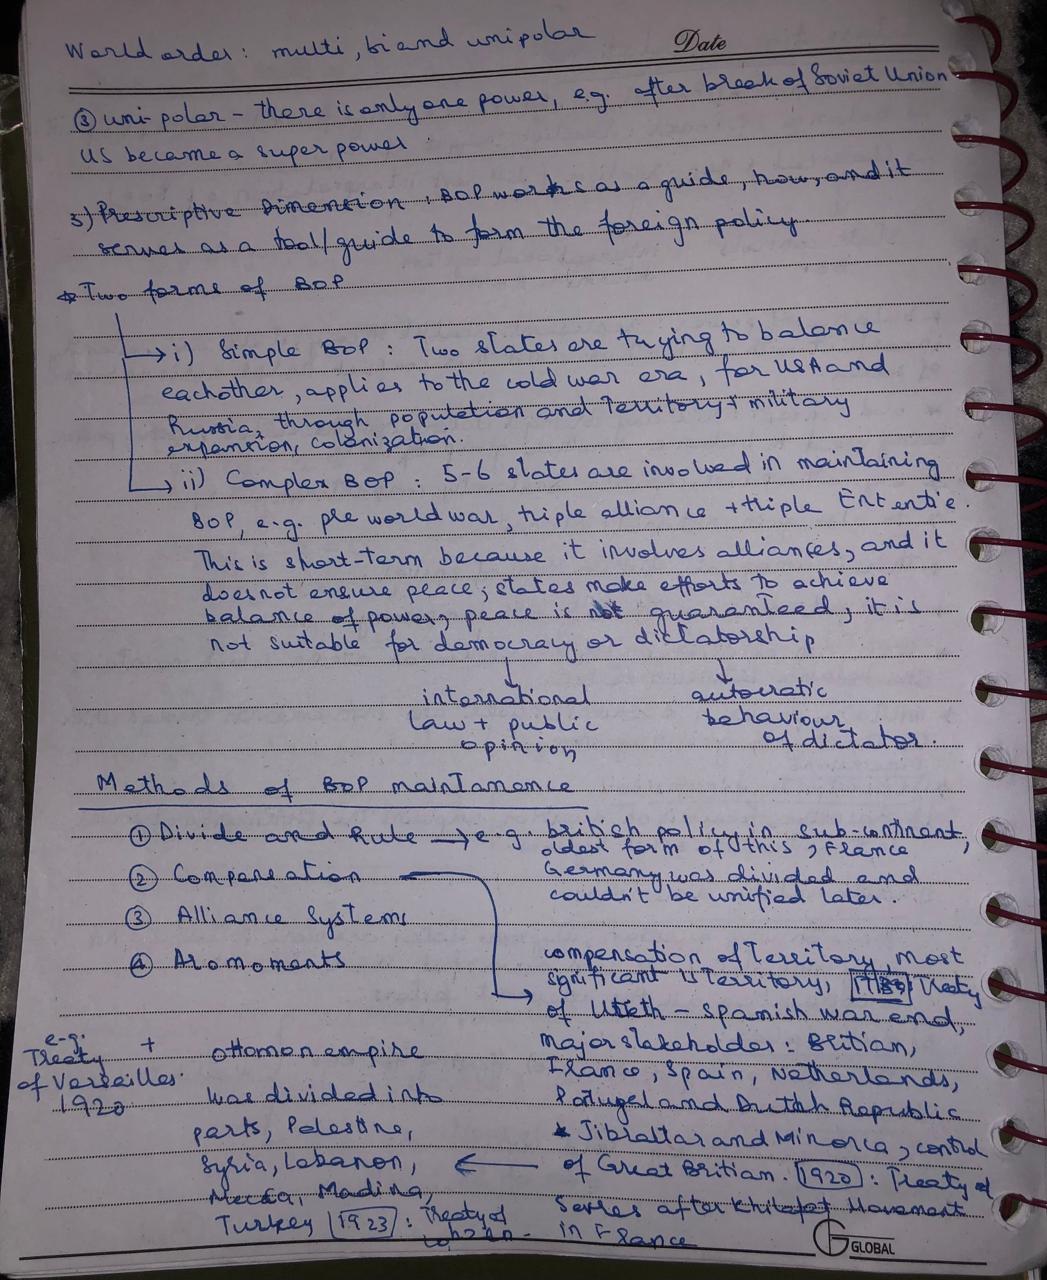 World order: multi, bi and unipolar
Date
③ uni-polar - there is only one power, e.g. after break of Soviet Union
US became a super power
3) Prescriptive Dimension, BOP works as a guide, how, and it
serves as a tool/guide to form the foreign policy
* Two forms of BOP
i) Simple BOP : Two states are trying to balance
eachother, applies to the cold war era, for USA and
Russia, through population and Territory + military
expansion, colonization.
ii) Complex BOP : 5-6 states are involved in maintaining
BOP, e.g. pre world war, triple alliance + triple Ententie.
This is short-term because it involves alliances, and it
doesnot ensure peace; states make efforts to achieve
balance of power, peace is not guaranteed, it is
not suitable for democracy or dictatorship
international
law + public
opinion
autocratic
behaviour
of dictator.
Methods of BOP maintanance
① Divide and Rule → e.g. british policy in sub-continant,
oldest form of this, France
Germany was divided and
couldn't be unified later.
② Compensation
③ Alliance Systems
④ Aromoments
compensation of Territory, most
significant is territory, Treaty
of Utrth - spanish war end,
major stakeholder : Britian,
France, Spain, Netherlands,
Portugel and Dutch Republic
* Jibraltar and Minorca, control
of Great Britian. 1920 : Treaty of
Serves after Khilafat Movement
in France
e-g:
Treaty +
of Versailles.
1920
ottomon empire
was divided into
parts, Palestine,
Syria, Labanon,
Mecca, Madina,
Turkey 1923 : Treaty of
GLOBAL